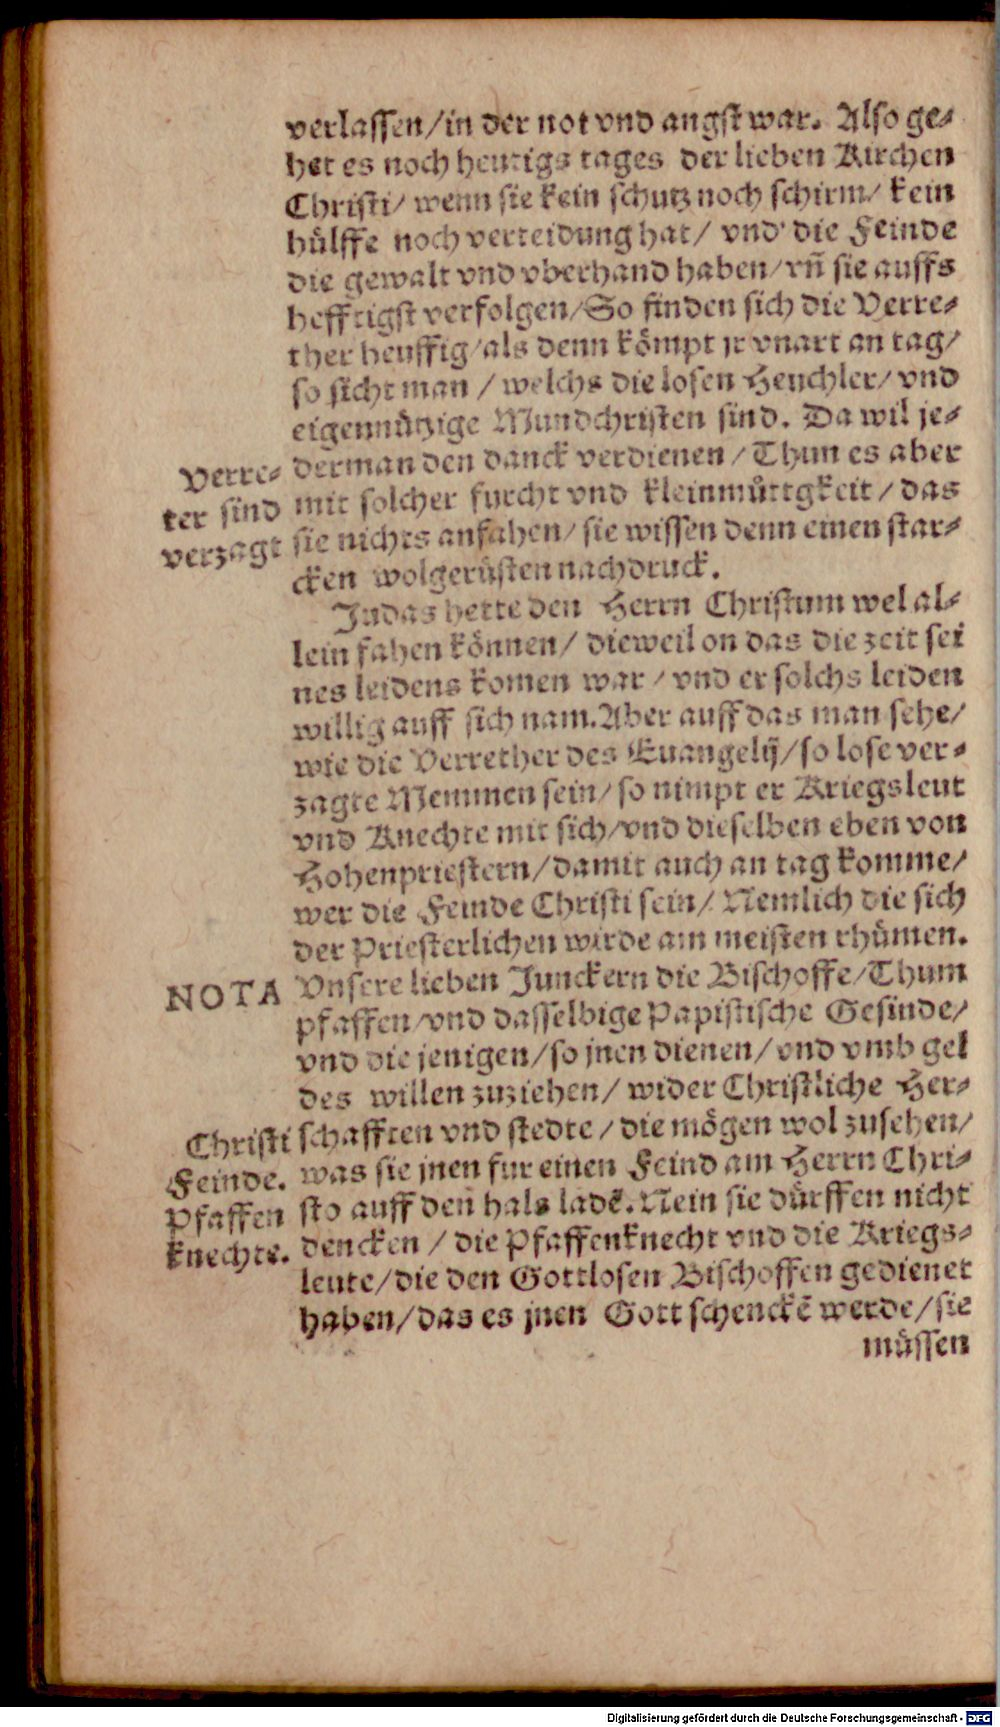 verlassen/in der not vnd angst war. Also ge⸗
het es noch heutigs tages der lieben Kirchen
Christi/ wenn sie kein schutz noch schirm/ kein
hülffe noch verteidung hat/ vnd die Feinde
die gewalt vnd vberhand haben/vñ sie auffs
hefftigst verfolgen/So finden sich die Verre⸗
ther heuffig/als denn kömpt jr vnart an tag/
so sicht man / welchs die losen Heuchler/ vnd
eigennützige Mundchristen sind. Da wil je⸗
derman den danck verdienen / Thun es aber
mit solcher furcht vnd kleinmüttgkeit / das
sie nichts anfahen/ sie wissen denn einen star⸗
cken wolgerüsten nachdruck.
Verre⸗
ter sind
verzagt
Judas hette den Herrn Christum wel al⸗
lein fahen können/ dieweil on das die zeit sei
nes leidens komen war / vnd er solchs leiden
willig auff sich nam.Aber auff das man sehe/
wie die Verrether des Euangelij/so lose ver⸗
zagte Memmen sein/ so nimpt er Kriegsleut
vnd Knechte mit sich/vnd dieselben eben von
Hohenpriestern/damit auch an tag komme/
wer die Feinde Christi sein/ Nemlich die sich
der Priesterlichen wirde am meisten rhümen.
Vnsere lieben Junckern die Bischoffe/Thum
pfaffen/vnd dasselbige Papistische Gesinde/
vnd die jenigen/so jnen dienen/vnd vmb gel
des willen zuziehen/ wider Christliche Her⸗
schafften vnd stedte / die mögen wol zusehen/
was sie jnen fur einen Feind am Herrn Chri⸗
sto auff den hals ladē. Nein sie dürffen nicht
dencken / die Pfaffenknecht vnd die Kriegs⸗
leute/die den Gottlosen Bischoffen gedienet
haben/das es jnen Gott schenckē werde/sie
NOTA
Christi
Feinde.
Pfaffen
knechte.
müssen
Digitalisierung gefördert durch die Deutsche Forschungsgemeinschaft - DFG